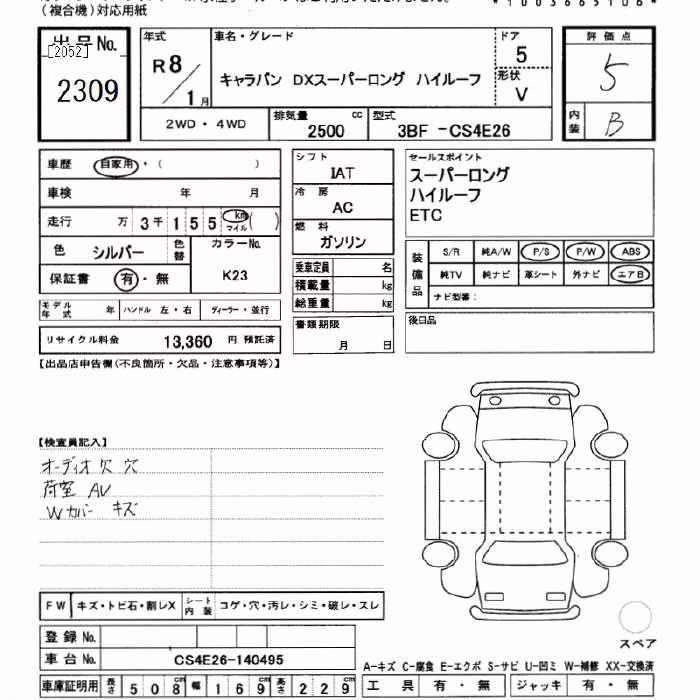 (複合機)対応用紙
*1003665106*
出品No.
[2052]
2309
年式
R8/1月
車名・グレード
キャラバン DXスーパーロング ハイルーフ
ドア
5
形状
V
評価点
5
内装
B
2WD・4WD
排気量
2500 cc
型式
3BF-CS4E26
車歴 自家用・( )
車検 年 月
走行 万 3千155 km マイル ( )
色 シルバー 色替 カラーNo.
K23
保証書 有・無
モデル年式 年 ハンドル 左・右 ディーラー・並行
リサイクル料金 13,360 円 預託済
シフト
IAT
冷房
AC
燃料
ガソリン
乗車定員 名
積載量 kg
総重量 kg
書類期限
月 日
セールスポイント
スーパーロング
ハイルーフ
ETC
装備品
S/R 純A/W P/S P/W ABS
純TV 純ナビ 革シート 外ナビ エアB
ナビ型番:
後日品
【出品店申告欄(不良箇所・欠品・注意事項等)】
【検査員記入】
オーディオ欠 穴
荷室 AU
Wカバー キズ
FW キズ・トビ石・割レX シート内装 コゲ・穴・汚レ・シミ・破レ・スレ
登録No.
車台No. CS4E26-140495
車庫証明用 長さ 508cm 幅 169cm 高さ 229cm
スペア
A-キズ C-腐食 E-エクボ S-サビ U-凹ミ W-補修 XX-交換済
工具 有・無 ジャッキ 有・無